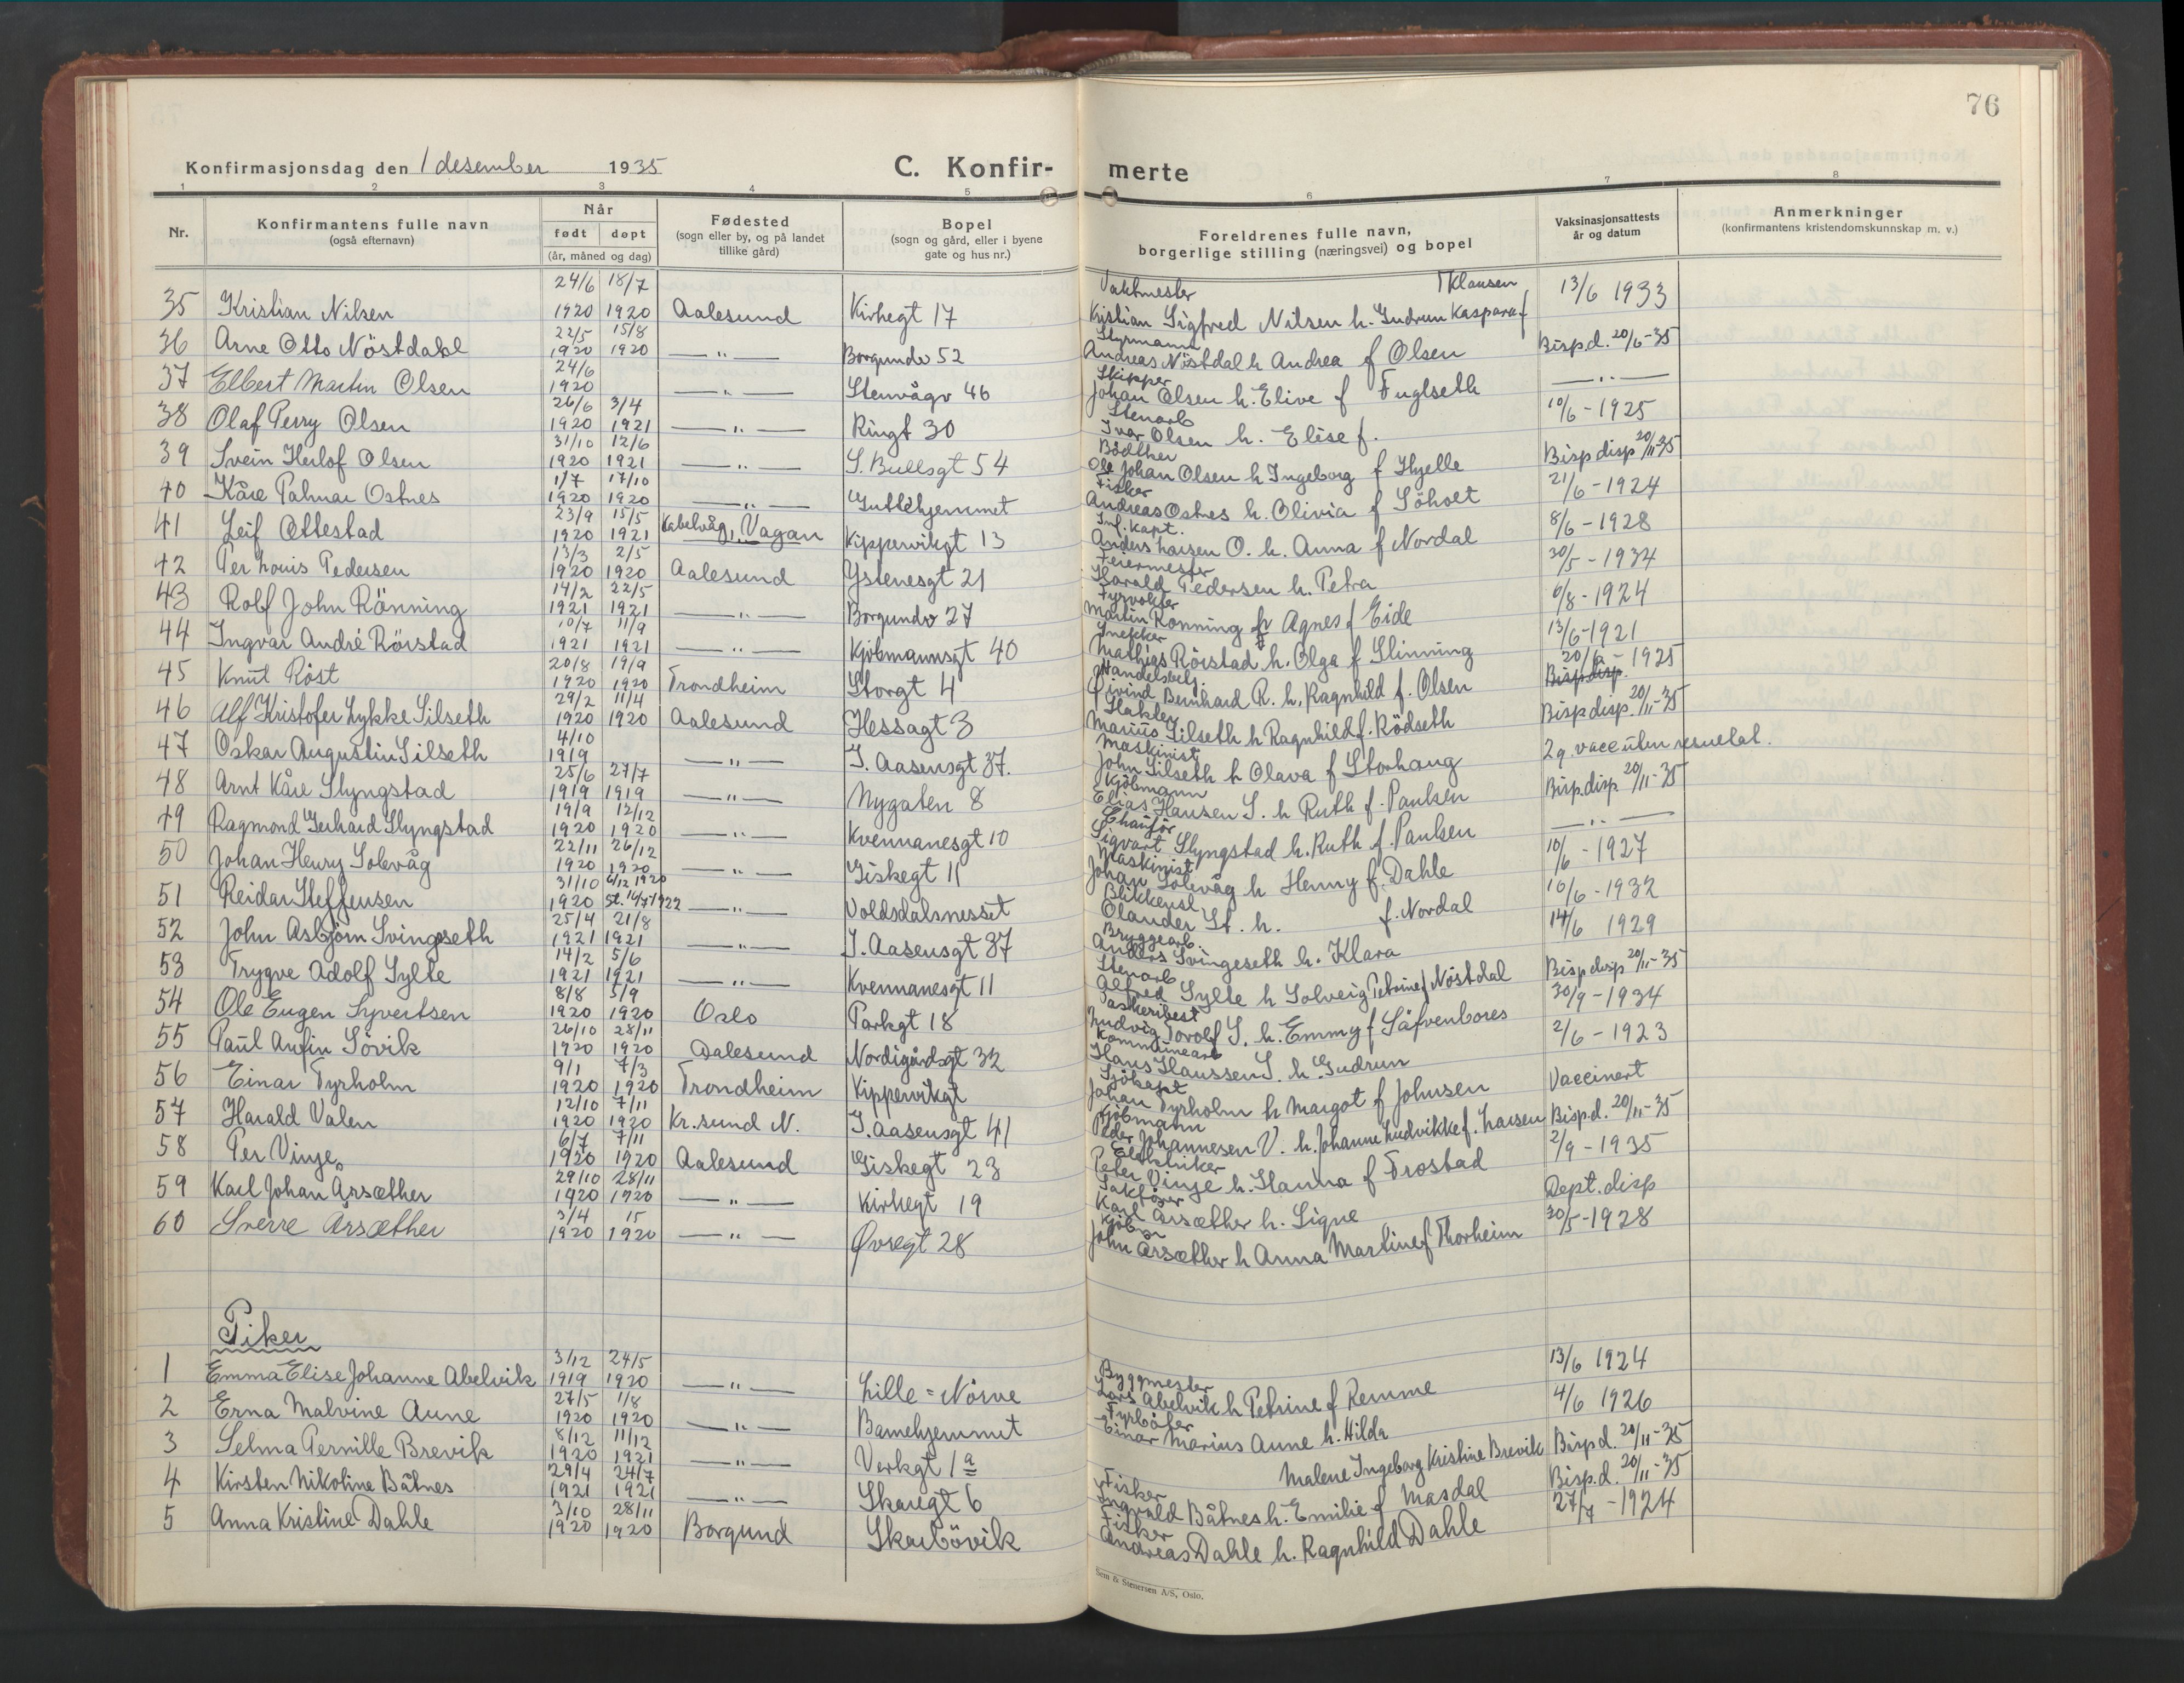 76
Konfirmasjonsdag den 1 desember 1935 C. Konfir- merte
1 2 3 4 5 6 7 8
Nr. Konfirmantens fulle navn (også efternavn) Når født døpt (år, måned og dag) Fødested (sogn eller by, og på landet tillike gård) Bopel (sogn og gård, eller i byene gate og hus nr.) Foreldrenes fulle navn, borgerlige stilling (næringsvei) og bopel Vaksinasjonsattests år og datum Anmerkninger (konfirmantens kristendomskunnskap m. v.)
35 Kristian Nilsen 24/6 1920 18/7 1920 Aalesund Kirkegt 17 Vaktmester Kristian Sigfred Nilsen h. Gudrun Kaspara f Klausen 13/6 1933
36 Arne Otto Nöstdahl 22/5 1920 15/8 1920 —"— Borgundv 52 Styrmann Andreas Nöstdal h Andrea f Olsen Bisp.d. 20/6-35
37 Elbert Martin Olsen 24/6 1920 —"— Stenvågv 46 Skipper Johan Olsen h. Elive f Fuglseth —"—
38 Olaf Perry Olsen 26/6 1920 3/4 1921 —"— Ringt 30 Stenarb Ivar Olsen h. Elise f. 10/6-1925
39 Svein Herlof Olsen 31/10 1920 12/6 1921 —"— S. Bullsgt 54 Bödther Ole Johan Olsen h Ingeborg f Hjelle Bisp disp 20/11-35
40 Kåre Palmar Ostnes 1/7 1920 17/10 1920 —"— Guttehjemmet Fisker Andreas Ostnes h. Olivia f Söholt 21/6-1924
41 Leif Ottestad 23/9 1920 15/5 1921 Kabelvåg, Vagan Kippervikgt 13 Inf. kapt. Anders Larsen O. h. Anna f Nordal 8/6-1928
42 Per Louis Pedersen 13/3 1920 2/5 1920 Aalesund Ystenesgt 21 Feiermester Harald Pedersen h. Petra 30/5-1934
43 Rolf John Rönning 14/2 1921 22/5 1921 —"— Borgundv 27 Fyrvokter Martin Rönning h Agnes f Eide 6/8-1924
44 Ingvar André Rörstad 10/7 1921 11/9 1921 —"— Kjöbmannsgt 40 Snekker Mathias Rörstad h. Olga f Slinning 13/6-1921
45 Knut Röst 20/8 1920 19/9 1920 Trondheim Storgt 4 Handelsbetj. Øivind Bernhard R. h. Ragnhild f. Olsen 20/6-1925 Bisp disp.
46 Alf Kristofer Lykke Silseth 29/2 1920 11/4 1920 Aalesund Hessagt 3 Slakter Marius Silseth h Ragnhild f. Rödseth Bisp disp. 20/11-35
47 Oskar Augustin Silseth 4/10 1919 —"— I. Aasensgt 37. Maskinist John Silseth h Olava f Storhaug 2 g. vacc uten resultat.
48 Arnt Kåre Slyngstad 25/6 1919 27/7 1919 —"— Nygaten 8 Kjöbmann Elias Hansen S. h Ruth f. Paulsen Bisp.disp 20/11-35
49 Ragmond Gerhard Slyngstad 19/9 1920 12/12 1920 —"— Kvennanesgt 10 Chauför Sigvart Slyngstad h. Ruth f. Paulsen —"—
50 Johan Henry Solevåg 22/11 1920 26/12 1920 —"— Giskegt 11 Maskinist Johan Solevåg h Henny f. Dahle 10/6-1927
51 Reidar Steffensen 31/10 1920 6/12 1920 st. 16/7 1922 —"— Voldsdalsnesset Blikkensl Olander St. h. f. Nordal 16/6-1932
52 John Asbjörn Svingseth 25/4 1921 21/8 1921 —"— I. Aasensgt 37 Bryggearb. Anders Svingeseth h. Klara 14/6 1929
53 Trygve Adolf Sylte 14/2 1921 5/6 1921 —"— Kvennanesgt 11 Stenarb Alfred Sylte h Solveig Petrine f Nöstdal Bisp disp 20/11-35
54 Ole Eugen Syvertsen 8/8 1920 5/9 1920 Oslo Parkgt 18 Ludvig Torolf S. h. Emmy f Säfvenbores 30/9-1934
55 Paul Anfin Sövik 26/10 1920 28/11 1920 Aalesund Nordigårdsgt 32 Kommunearb Hans Hanssen S. h Gudrun 2/6-1923
56 Einar Tyrholm 9/1 1920 7/3 1920 Trondheim Kippervikgt Sjökapt Johan Tyrholm h Margot f Johnsen Vaccinert
57 Harald Valen 12/10 1920 7/11 1920 Kr.sund N. I. Aasensgt 41 Kjöbmann Peder Johannesen V. h. Johanne Ludvikke f. Larsen Bisp.d. 20/11-35
58 Per Vinje 6/7 1920 7/11 1920 Aalesund Giskegt 23 Elektriker Peter Vinje h. Hanna f Frostad 2/9-1935
59 Karl Johan Årsæther 29/10 1920 28/11 1920 —"— Kirkegt 19 Karl Årsæther h. Signe Dept. disp
60 Sverre Årsæther 3/4 1920 15 1920 —"— Øvregt 28 Kjöbm John Årsæther h Anna Martine f Thorheim 30/5-1928
Piker
1 Emma Elise Johanne Abelvik 3/12 1919 24/5 1920 —"— Lille-Nörve Byggmester Lars Abelvik h Petrine f Remme 13/6 1924
2 Erna Malvine Aune 27/5 1920 1/8 1920 —"— Barnehjemmet Fyrböter Einar Marius Aune h. Hilda 4/6 1926
3 Selma Pernille Brevik 8/12 1920 11/12 1921 —"— Verkgt 1a Malene Ingeborg Kristine Brevik Bisp d. 20/11-35
4 Kirsten Nikoline Båtnes 29/4 1921 24/7 1921 —"— Skaregt 6 Fisker Ingvald Båtnes h. Emilie f Masdal Bisp.d. 20/11-35
5 Anna Kristine Dahle 3/10 1920 28/11 1920 Borgund Skarbövik Fisker Andreas Dahle h. Ragnhild Dahle 27/7-1924
Sem & Stenersen A/S, Oslo.